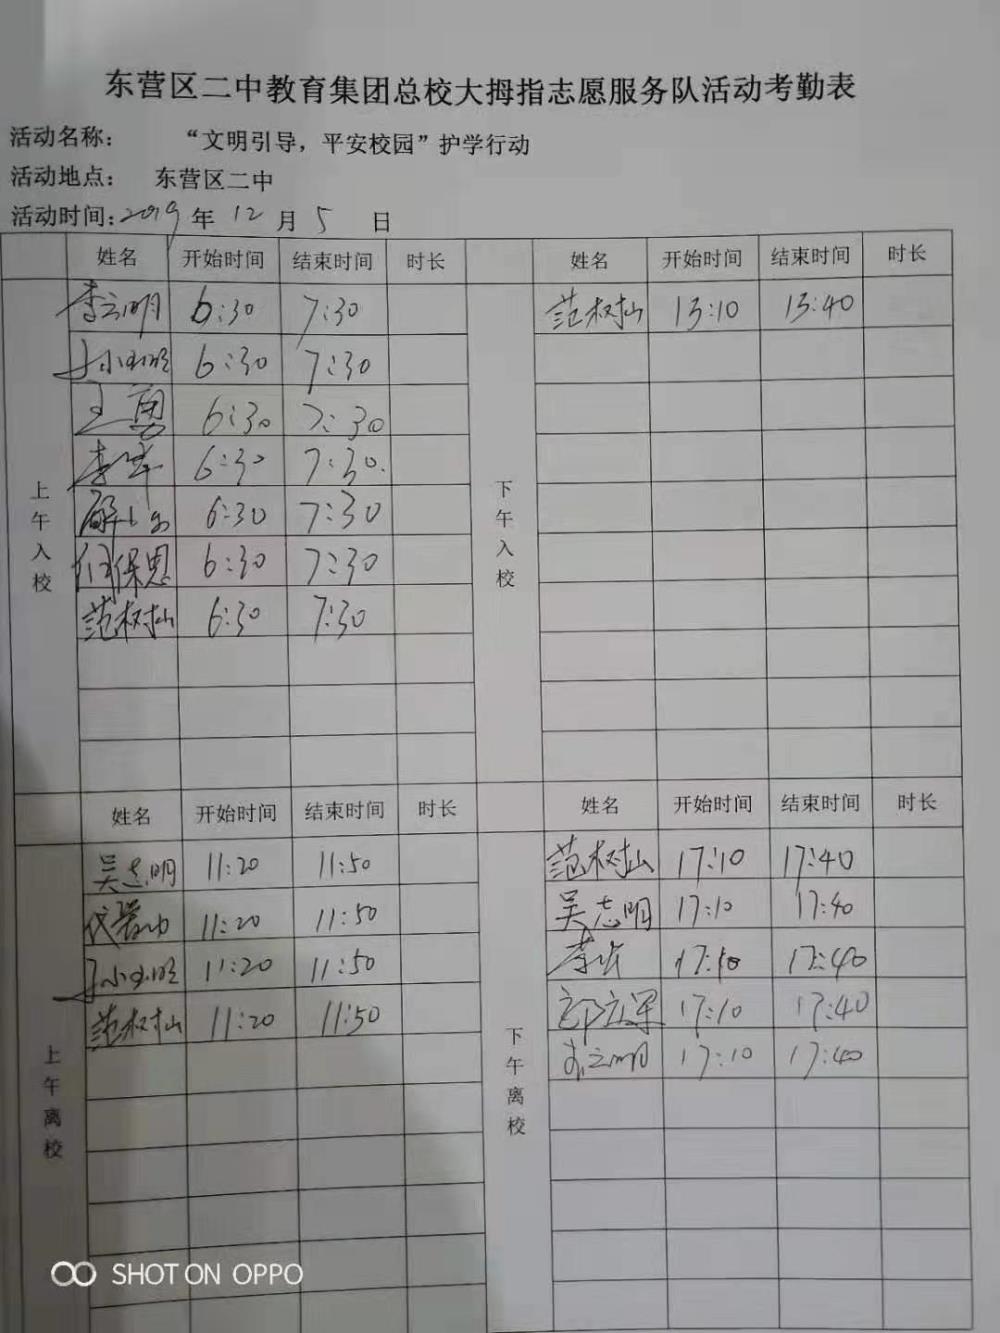 东营区二中教育集团总校大拇指志愿服务队活动考勤表
活动名称： “文明引导，平安校园”护学行动
活动地点： 东营区二中
活动时间：2019年12月5日
姓名 开始时间 结束时间 时长
上午入校
李云明 6:30 7:30
6:30 7:30
王勇 6:30 7:30
6:30 7:30.
6:30 7:30
何保恩 6:30 7:30
范树山 6:30 7:30
姓名 开始时间 结束时间 时长
下午入校
范树山 13:10 13:40
姓名 开始时间 结束时间 时长
上午离校
吴志明 11:20 11:50
11:20 11:50
11:20 11:50
范树山 11:20 11:50
姓名 开始时间 结束时间 时长
下午离校
范树山 17:10 17:40
吴志明 17:10 17:40
17:10 17:40
郭立军 17:10 17:40
李云明 17:10 17:40
SHOT ON OPPO